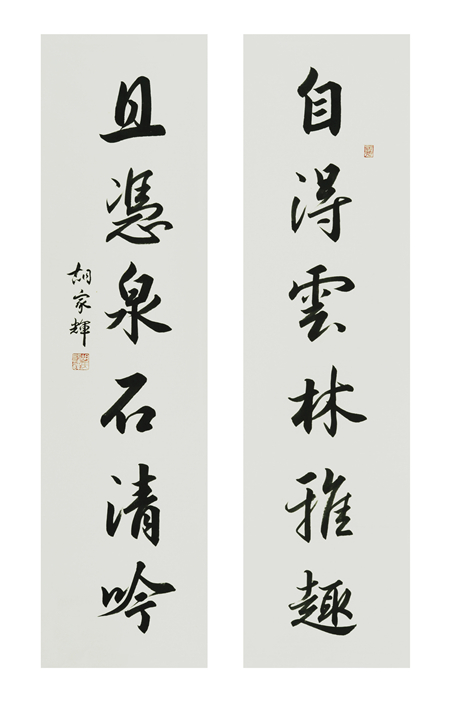 自得雲林雅趣
且憑泉石清吟
胡家輝